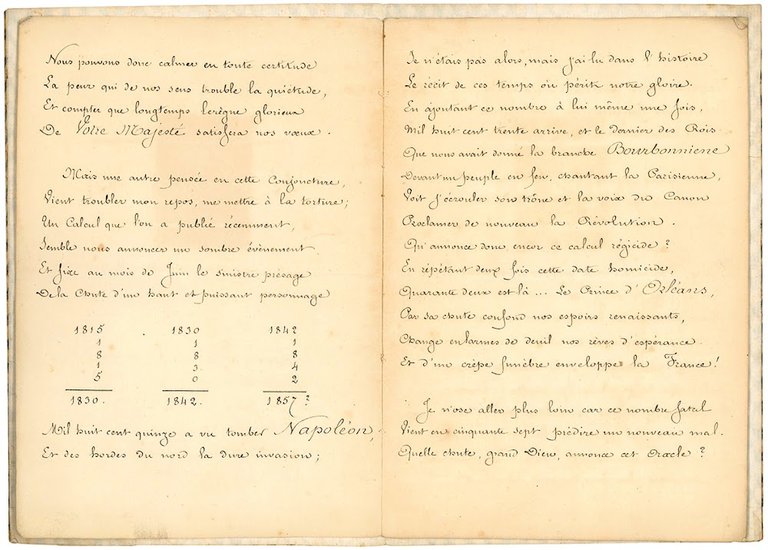 Nous pouvons donc calmer en toute certitude
La peur qui de nos sens trouble la quiétude,
Et compter que longtemps le règne glorieux
De Votre Majesté satisfera nos vœux.
Mais une autre pensée en cette Conjoncture,
Vient troubler mon repos, me mettre à la torture;
Un Calcul que l'on a publié récemment,
Semble nous annoncer un sombre évènement
Et fixe au mois de Juin le sinistre présage
De la Chute d'un haut et puissant personnage
1815 . 1830 1842
1 1 1
8 8 8
1 3 4
5 0 2
1830. 1842. 1857?
Mil huit cent quinze a vu tomber Napoléon,
Et des hordes du nord la dure invasion;
Je n'étais pas alors, mais j'ai lu dans l'histoire
Le récit de ces temps où périt notre gloire.
En ajoutant ce nombre à lui même une fois,
Mil huit cent trente arrive, et le dernier des Rois
Que nous avait donné la branche Bourbonniene
Devant un peuple en feu, chantant la Parisienne,
Voit s'écrouler son trône et la voix du Canon
Proclamer de nouveau la Révolution.
Qu'annonce donc encor ce calcul régicide?
En répétant deux fois cette date homicide,
Quarante deux est là ... Le Prince d'Orléans,
Par sa chute confond nos espoirs renaissants,
Change en larmes de deuil nos rêves d'espérance
Et d'un crêpe funèbre enveloppe la France!
Je n'ose aller plus loin car ce nombre fatal
Vient en cinquante sept prédire un nouveau mal.
Quelle chute, grand Dieu, annonce cet Oracle?